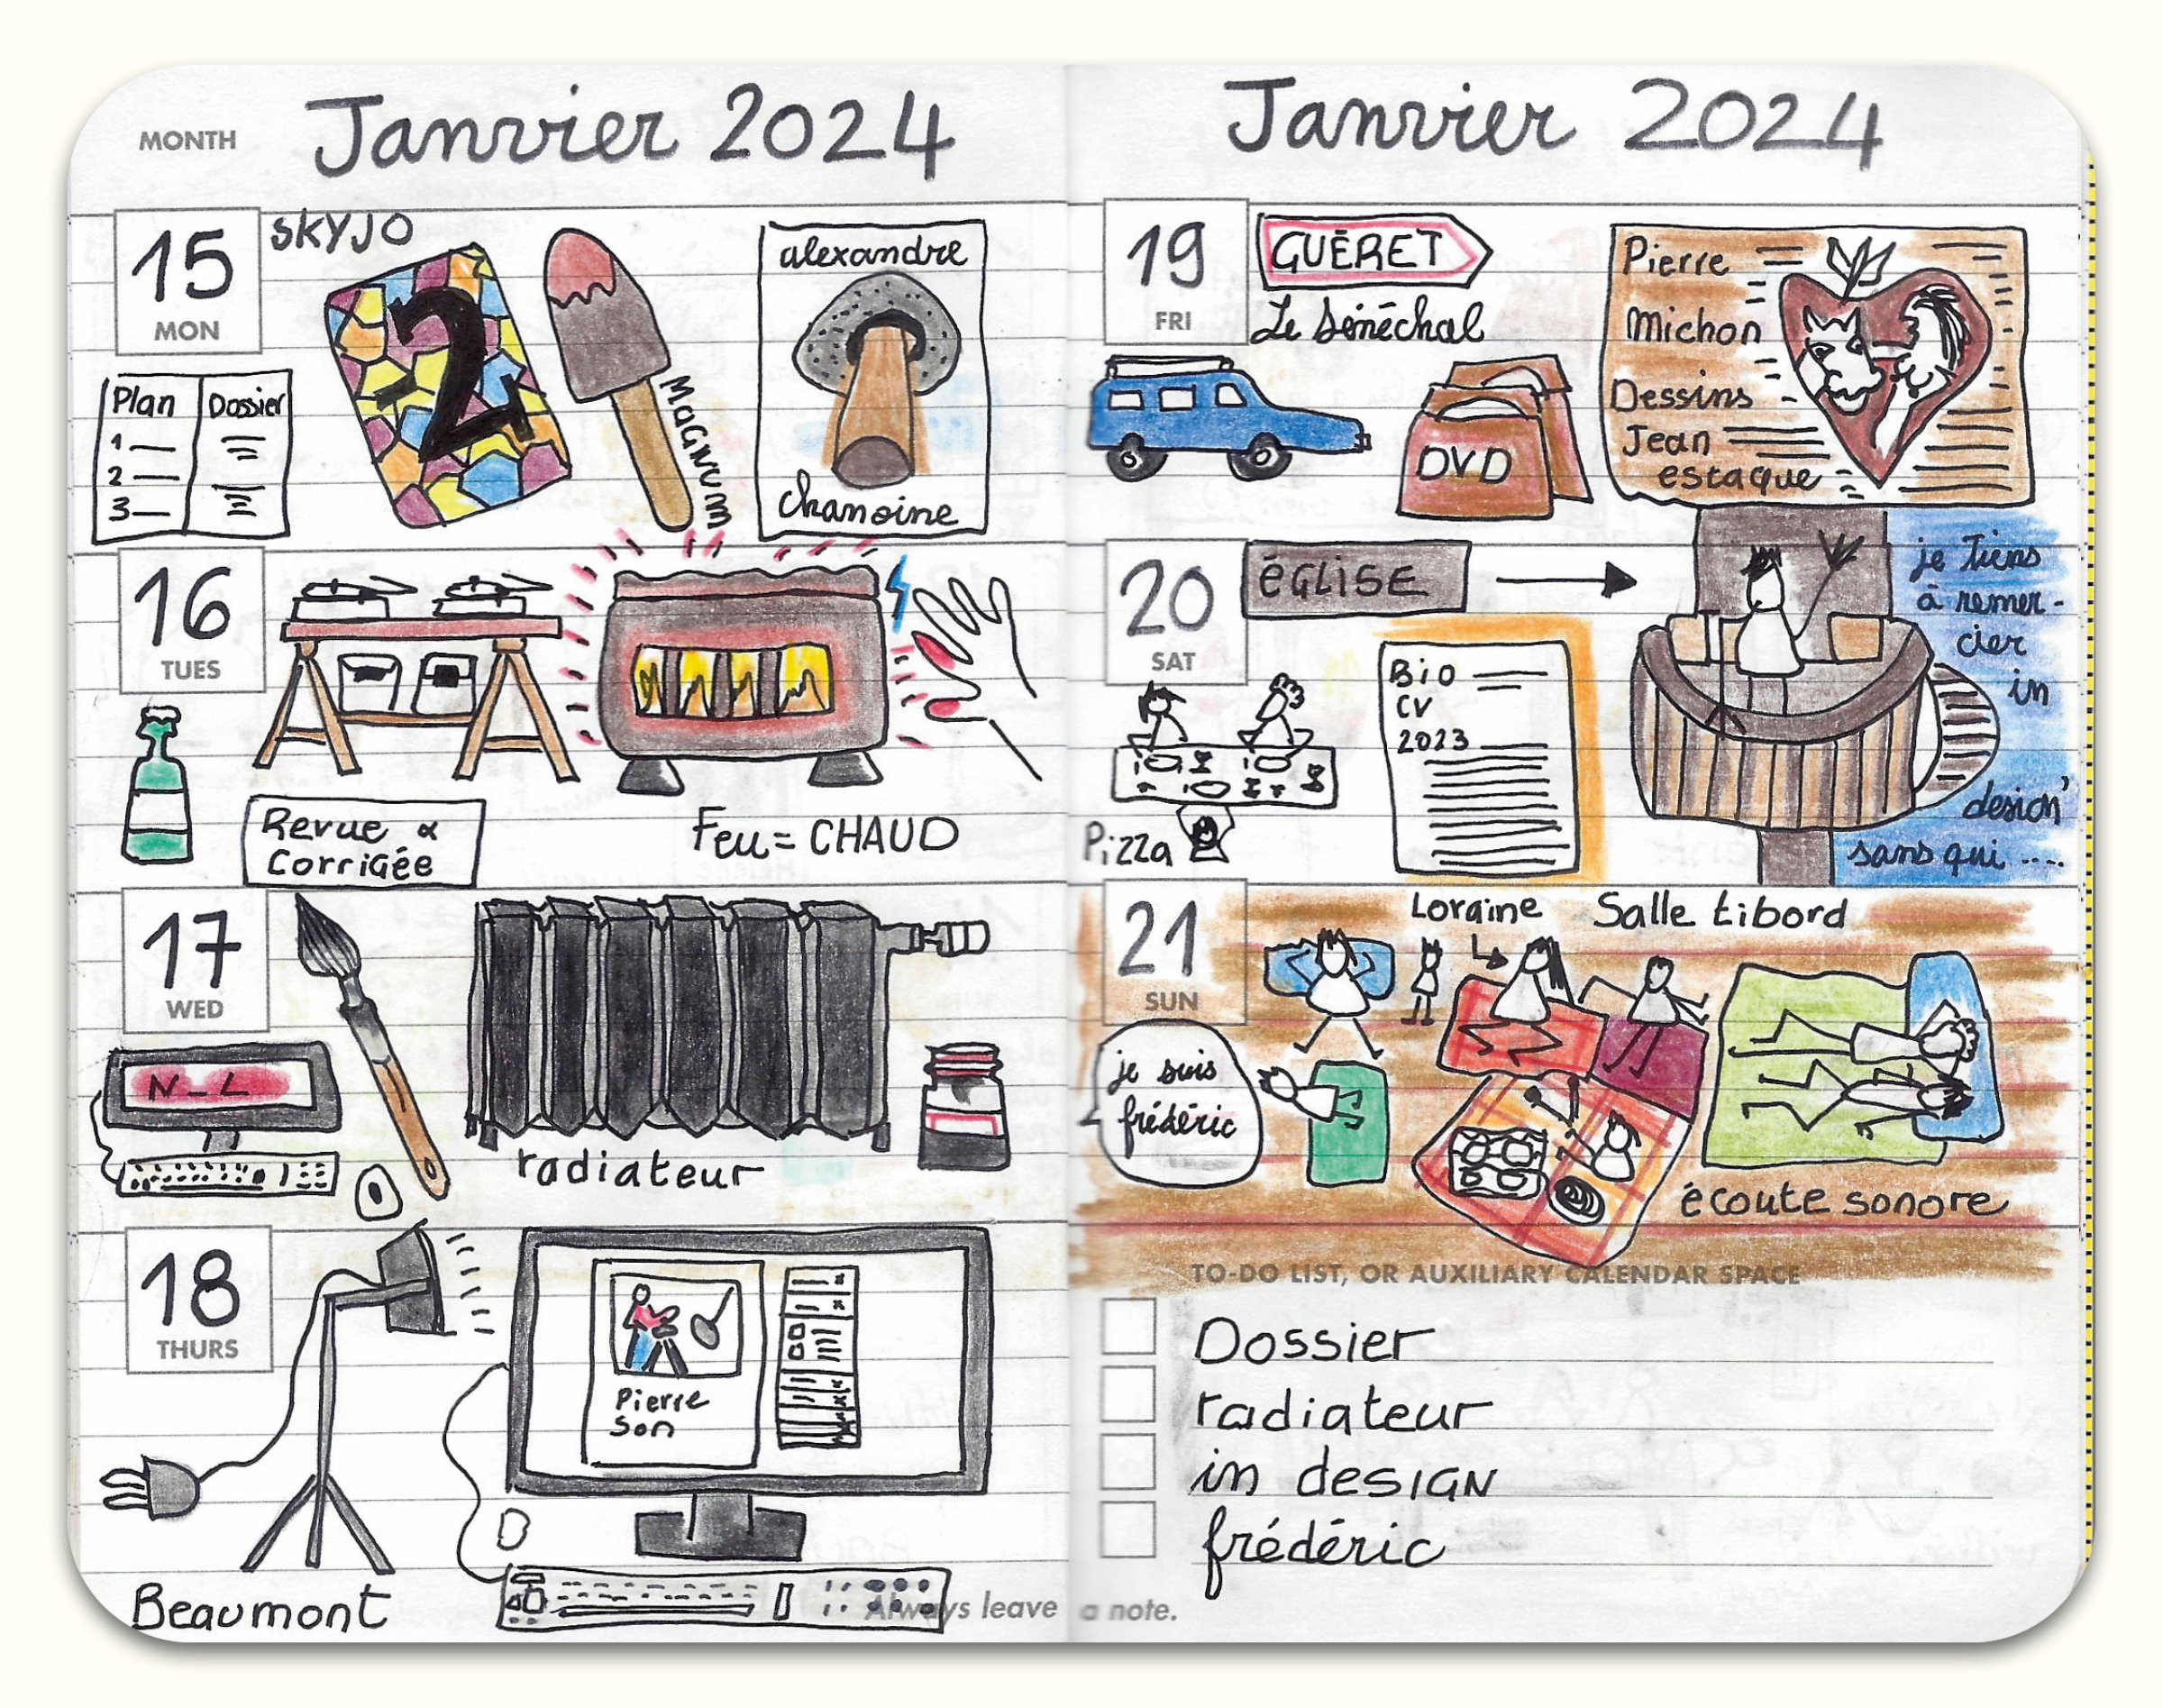 MONTH
Janvier 2024
15
MON
SKYJO
2
Magnum
alexandre
chanoine
Plan
Dossier
1
2
3
16
TUES
Revue &
Corrigée
Feu = CHAUD
17
WED
N_L
radiateur
18
THURS
Pierre
Son
Beaumont
Always leave a note.
Janvier 2024
19
FRI
GUÉRET
Le Sénéchal
DVD
Pierre
Michon
Dessins
Jean
estaque
20
SAT
ÉGLISE
Pizza
Bio
CV
2023
je tiens
à remer-
cier
in
design'
sans qui ....
21
SUN
Loraine
Salle tibord
je suis
frédéric
écoute sonore
TO-DO LIST, OR AUXILIARY CALENDAR SPACE
Dossier
radiateur
in deSIGN
frédéric